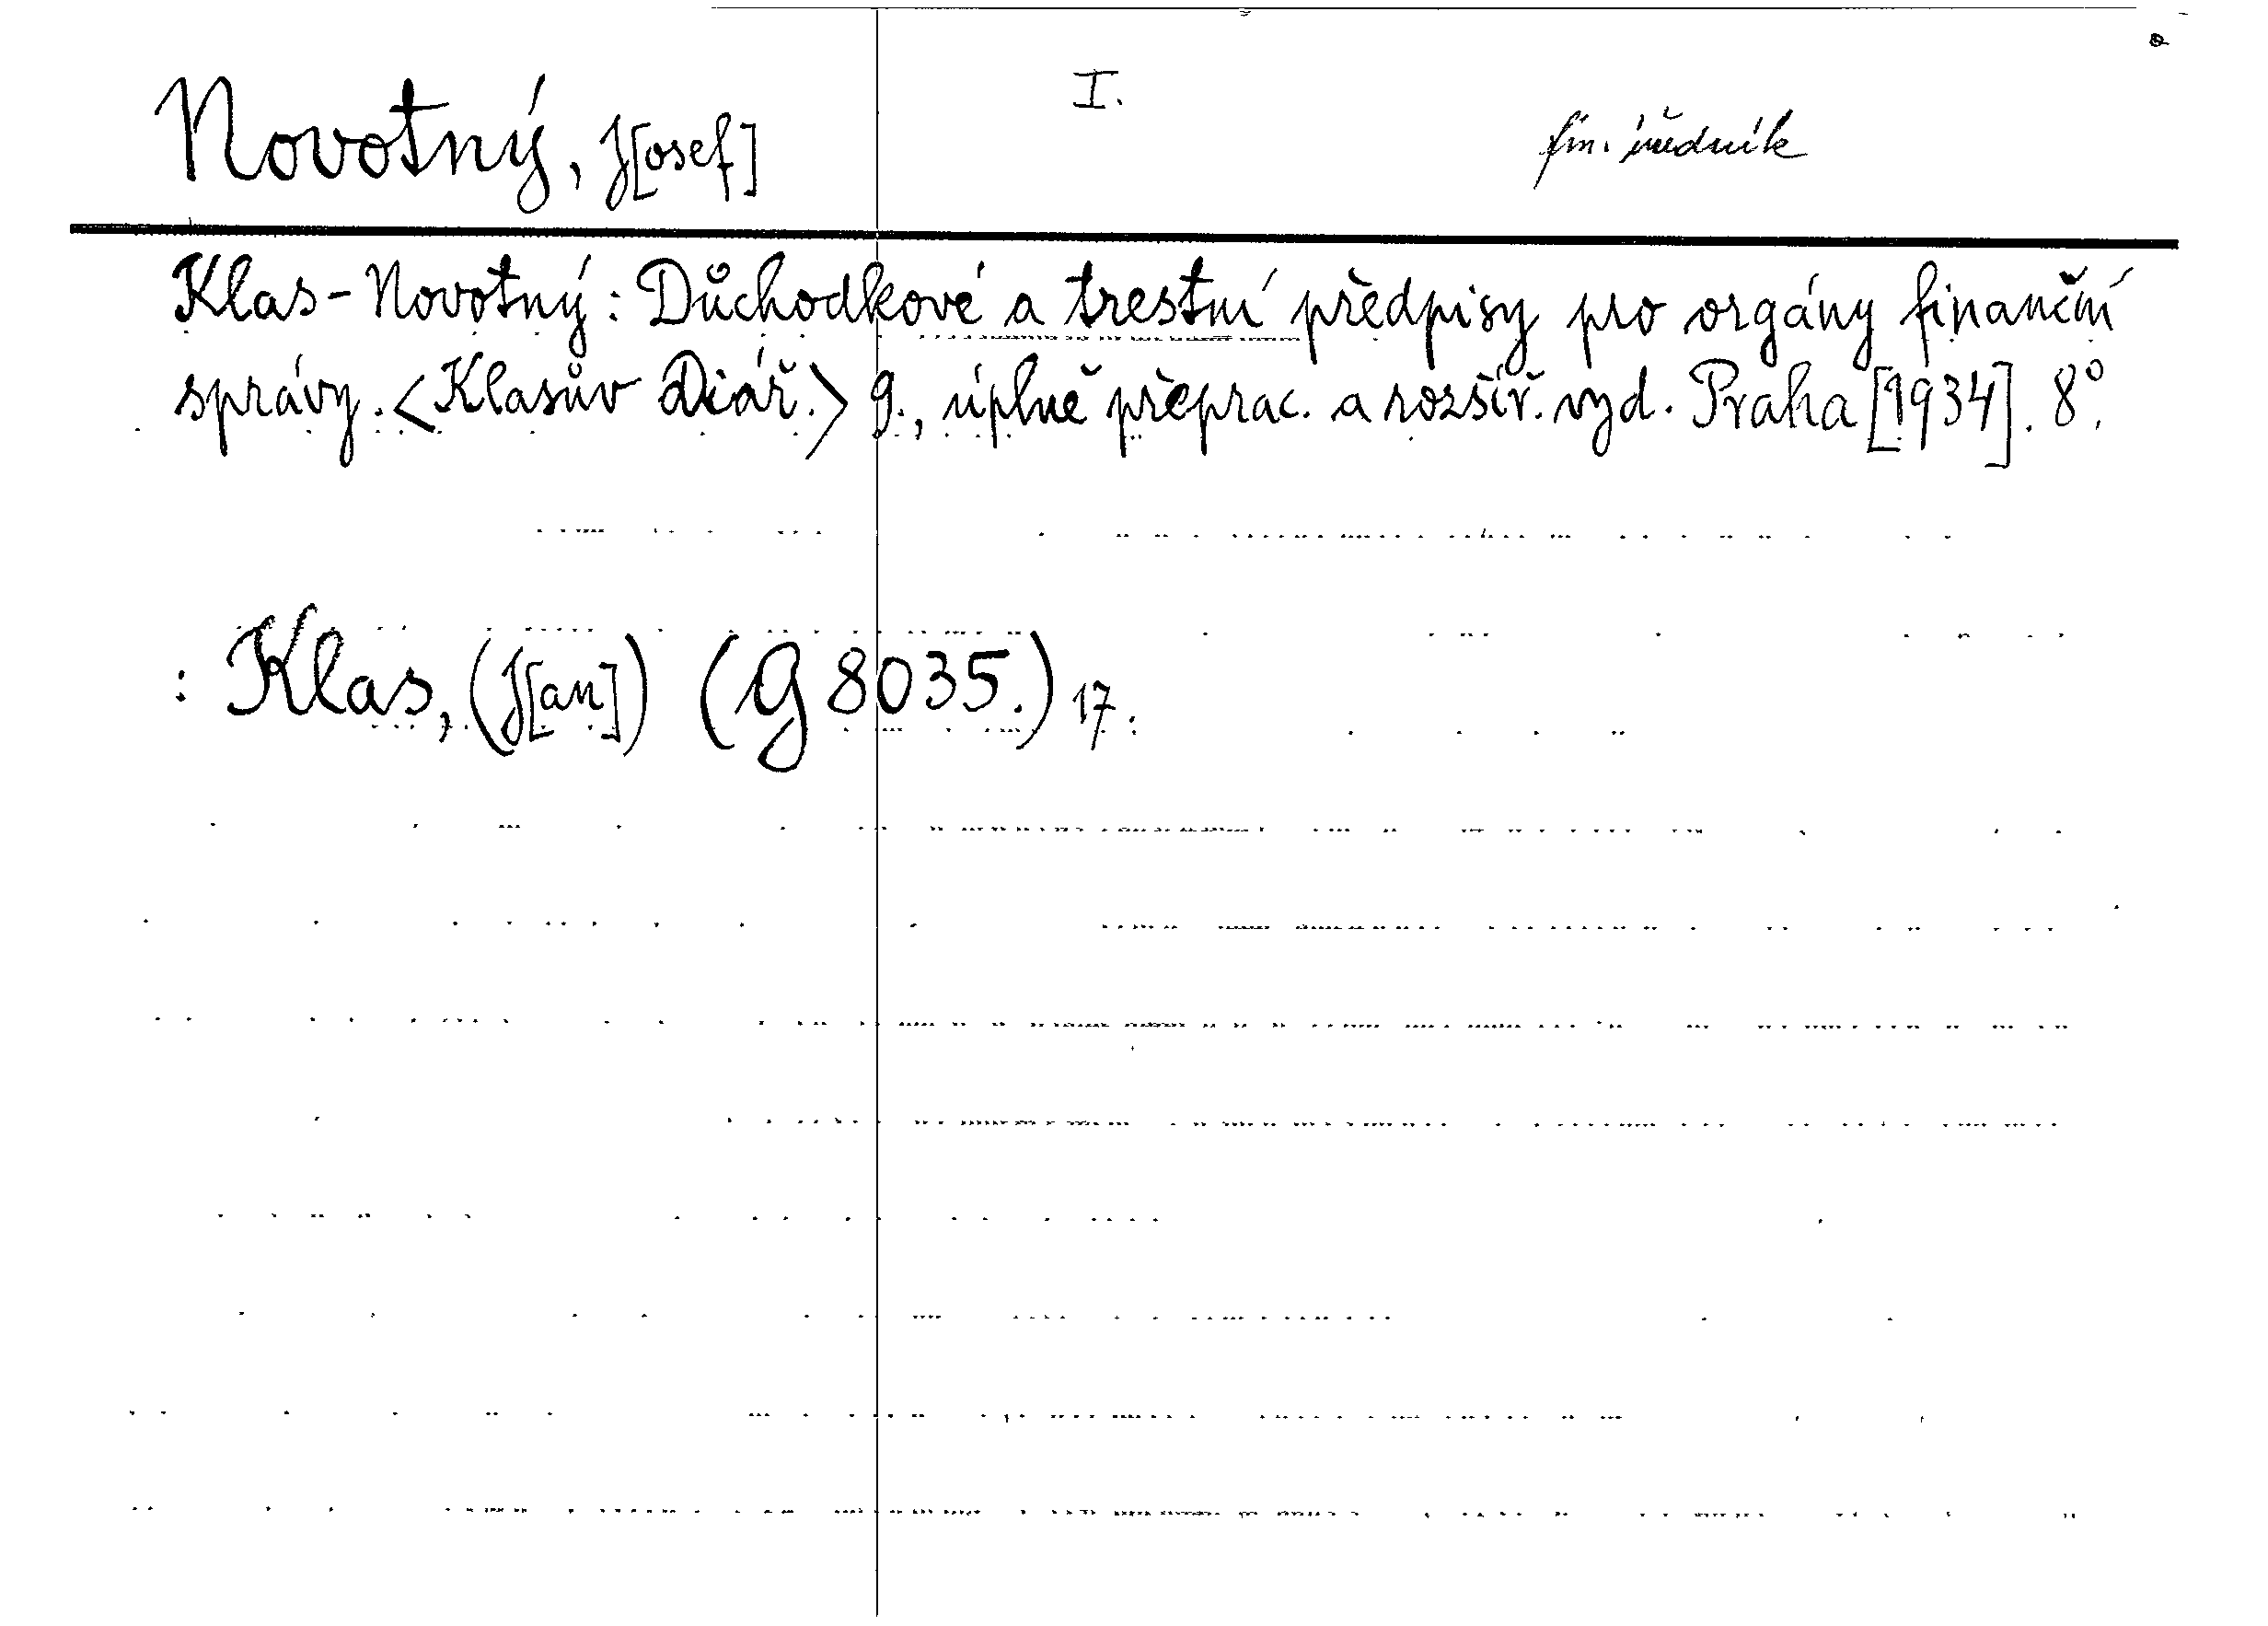 Novotný, J[osef] I. fin. úředník
Klas-Novotný: Důchodkové a trestní předpisy pro orgány finanční
správy. <Klasův Diář.> 9., úplně přeprac. a rozšíř. vyd. Praha [1934]. 8°.
: Klas, (J[an]) (G 8035.) 17.